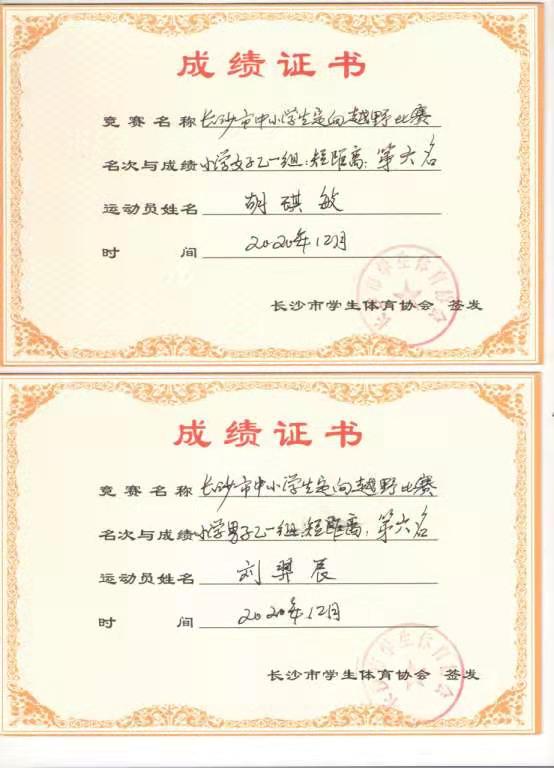 成绩证书
竞赛名称 长沙市中小学生定向越野比赛
名次与成绩 小学女子乙一组:短距离:第六名
运动员姓名 胡琪敏
时间 2020年12月
长沙市学生体育协会
长沙市学生体育协会 签发
成绩证书
竞赛名称 长沙市中小学生定向越野比赛
名次与成绩 小学男子乙一组:短距离:第六名
运动员姓名 刘羿辰
时间 2020年12月
长沙市学生体育协会
长沙市学生体育协会 签发